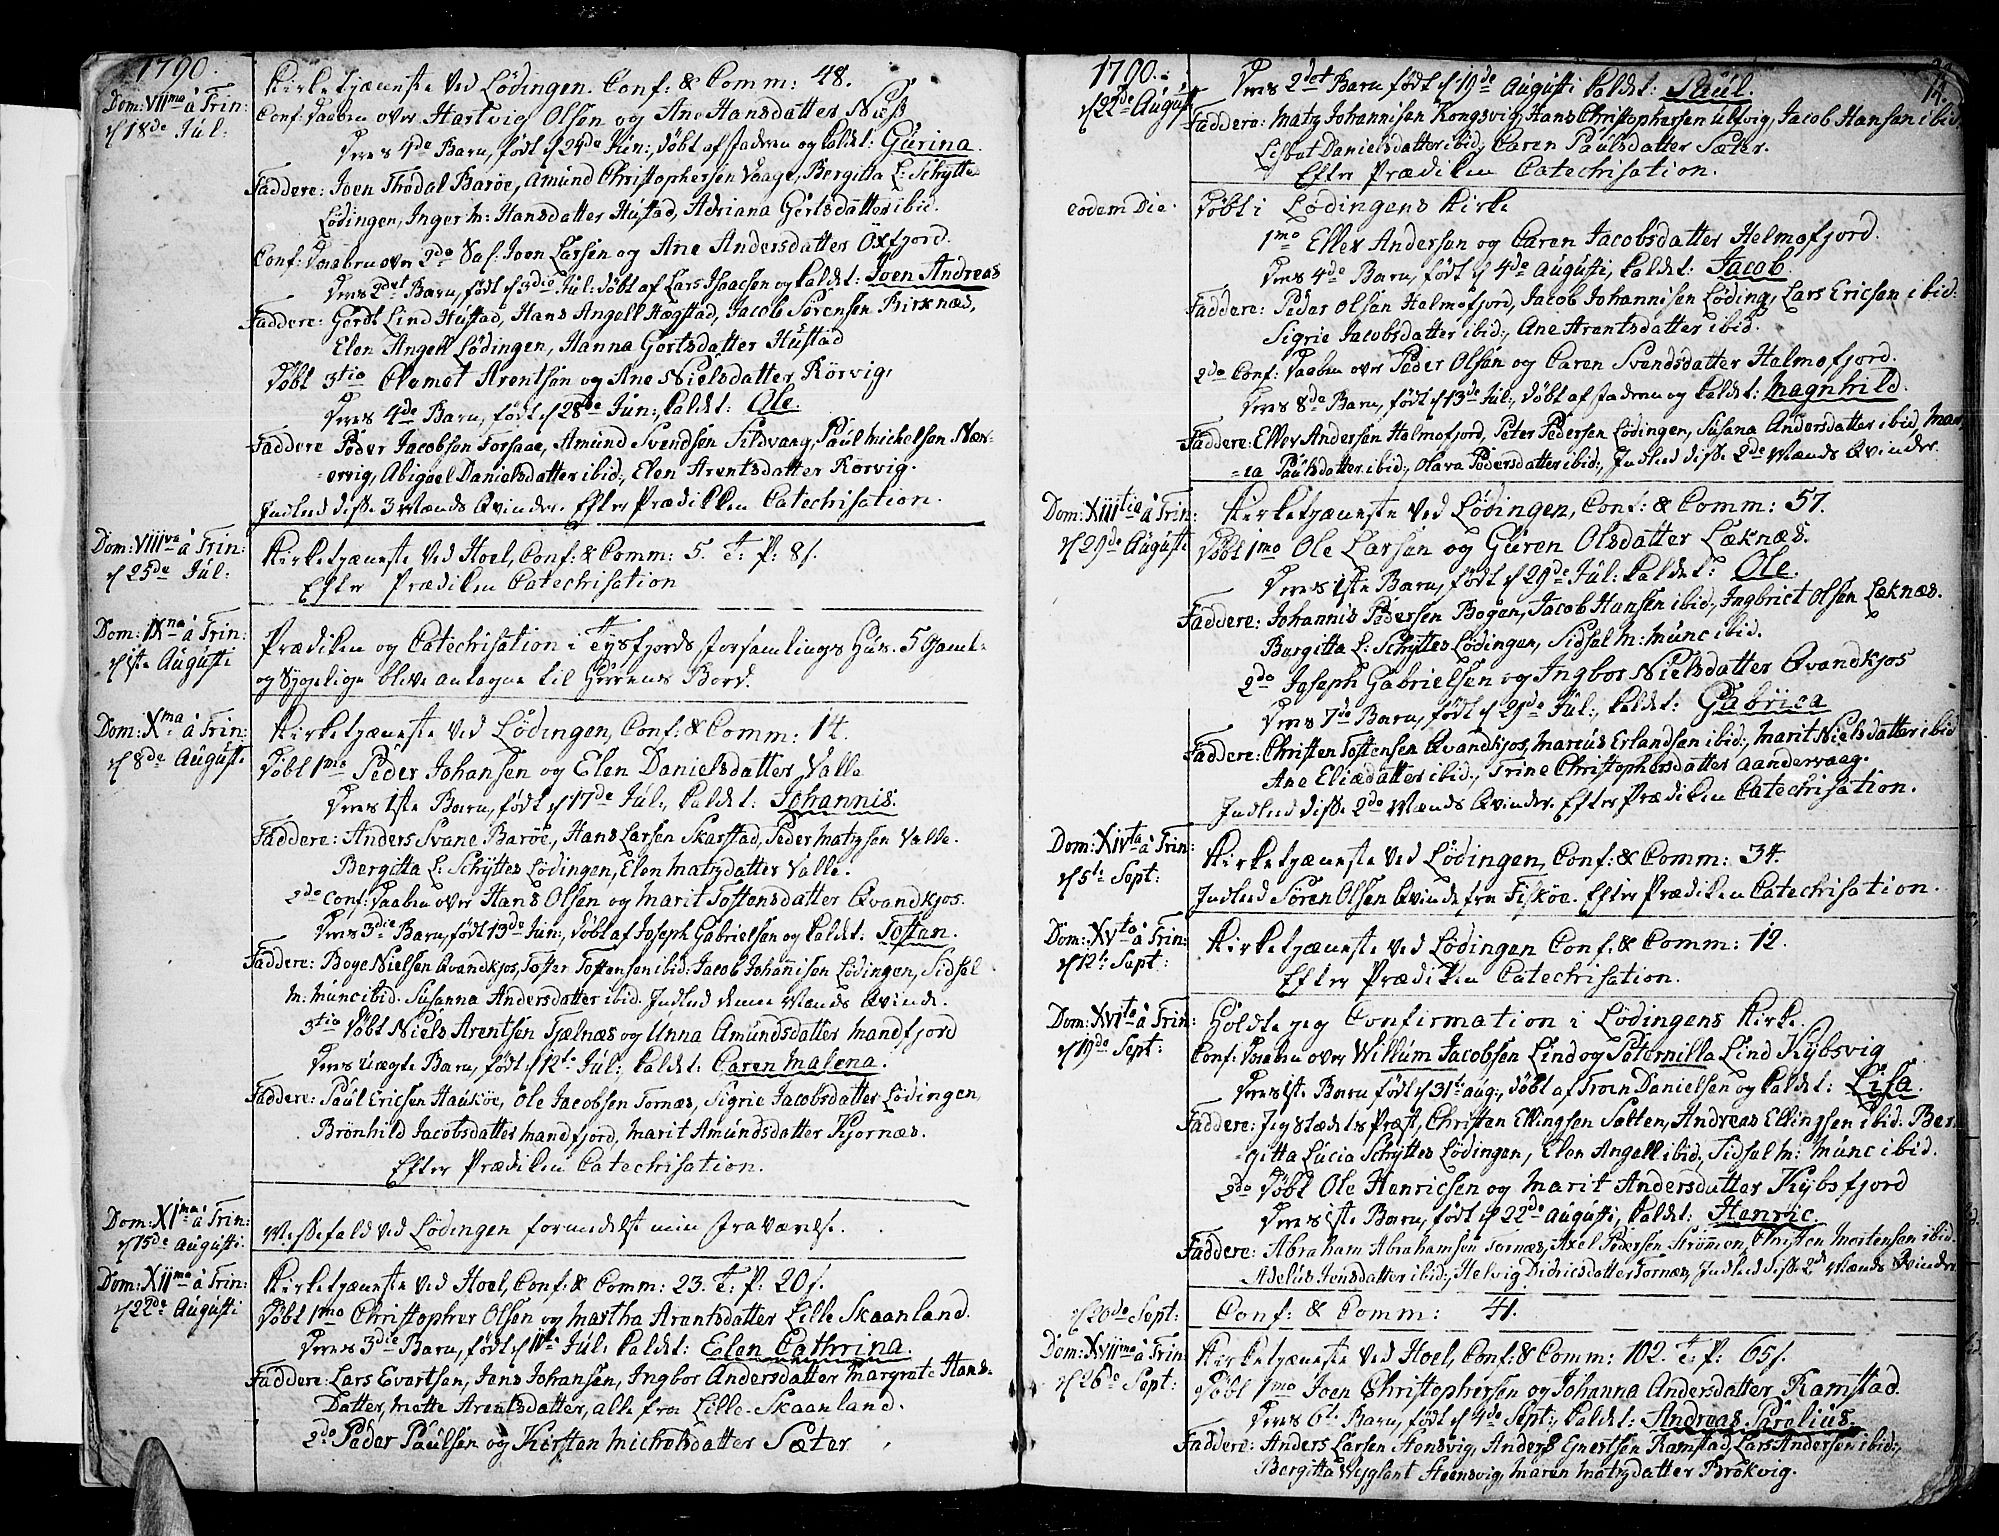 1790.
Dom: VII ma à Trin:
d 18de Jul:
Kirketjæneste ved Lödingen. Conf: & Comm: 48.
Conf: Daaben over Hartvig Olsen og Ane Hansdatter Næss
Deres 4de Barn, født d 24de Jun:, døbt af Faderen og kaldet: Gurina.
Faddere: Joen Thodal Baröe, Amund Christophersen Vaage, Bergitta L: Schytte
Lödingen, Inger M: Hansdatter Hustad, Adriana Gertsdatter ibid.
Conf: Daaben over 2do Sal. Joen Larsen og Ane Andersdatter Oxfjord.
Deres 2det Barn, født d 3die Jul: døbt af Lars Isaacsen og kaldet: Joen Andreas
Faddere: Gerdt Lind Hustad, Hans Angell Hægstad, Jacob Sørensen Birknæs,
Elen Angell Lödingen, Hanna Gertsdatter Hustad
Døbt 3tio Clemet Arentsen og Ane Nielsdatter Rörvig,
Deres 4de Barn, født d 28de Jun:, kaldet: Ole.
Faddere Peder Jacobsen Forsaae, Amund Svendsen Sildvaag, Paul Michelsen Nær-
=ervig, Abigael Danielsdatter ibid:, Elen Arentsdatter Rörvig.
Indled disse 3 Mænds Qvinder. Efter Prædiken Catechisation.
Dom: VIII va à Trin:
d 25de Jul:
Kirketjæneste ved Hoel, Conf: & Comm: 5. T: P: 8 s.
Efter Prædiken Catechisation
Dom: IX na à Trin:
d 1ste Augusti
Prædiken og Catechisation i Tysfjords Forsamlings Huus. 5 Gaml-
og Sygelige bleve antagne til Herrens Bord.
Dom: X ma à Trin:
d 8de Augusti
Kirketjæneste ved Lödingen, Conf: & Comm: 14.
Døbt 1mo Peder Johansen og Elen Danielsdatter Valle
Deres 1ste Barn, født d 17de Jul:, kaldet: Johannis.
Faddere: Anders Svane Baröe, Hans Larsen Skarstad, Peder Matzsen Valle.
Bergitta L: Schyttes Lödingen, Elen Matzdatter Valle.
2do Conf: Daaben over Hans Olsen og Marit Toftensdatter Qvandkjos.
Deres 3die Barn, født 13de Jun:, døbt af Joseph Gabrielsen og kaldet: Toften.
Faddere: Boye Nielsen Qvandkjos, Tofter Toftensen ibid: Jacob Johannisen Lödingen, Sidsel
M: Munc ibid. Susanna Andersdatter ibid. Indled denne Mands Qvinde.
3tio Døbt Niels Arentsen Tjælnæs og Unna Amundsdatter Mandfjord
Deres Uægte Barn, født d 12te Jul: kaldet: Caren Malena.
Faddere: Paul Ericsen Hauköe, Ole Jacobsen Fornæs, Sigrie Jacobsdatter Lödingen,
Brönhild Jacobsdatter Mandfjord, Marit Amundsdatter Kjornæs.
Efter Prædiken Catechisation.
Dom: XI ma à Trin:
d 15de Augusti.
Messefald ved Lödingen formedelst min Fraværelse.
Dom: XII ma à Trin:
d 22de Augusti
Kirketjæneste ved Hoel, Conf: & Comm: 23. T: P: 20 s.
Døbt 1mo Christopher Olsen og Martha Arentsdatter Lille Skaanland.
Deres 3die Barn, født d 11te Jul: kaldet: Elen Cathrina.
Faddere: Lars Evertsen, Jens Johansen, Ingbor Andersdatter Margrete Hans-
Datter, Mette Arentsdatter, alle fra Lille-Skaanland.
2do Peder Paulsen og Kirsten Michelsdatter Sæter
1790.
d 22de Augusti
14.
Deres 2det Barn født d 19de Augusti kaldet: Paul.
Faddere: Matz Johannisen Kongsvig, Hans Christophersen Ulvig, Jacob Hansen ibid.
Lisbut Danielsdatter ibid:, Caren Paulsdatter Sæter.
Efter Prædiken Catechisation.
eodem Die.
Døbt i Lödingens Kirke
1mo Ellev Andersen og Caren Jacobsdatter Helmofjord.
Deres 4de Barn, født d 4de Augusti, kaldet: Jacob.
Faddere: Peder Olsen Halmofjord, Jacob Johannisen Löding, Lars Ericsen ibid:
Sigrie Jacobsdatter ibid:, Ane Arentsdatter ibid.
2do Conf: Daaben over Peder Olsen og Caren Svendsdatter Halmofjord.
Deres 8de Barn, født d 13de Jul:, døbt af Faderen og kaldet: Magnhild.
Faddere: Ellev Andersen Halmofjord, Peter Pedersen Lödingen, Susana Andersdatter ibid, Mar-
=ea Paulsdatter ibid:, Olava Pedersdatter ibid:, Indled disse 2de Mænds Qvinder.
Dom: XIII tia à Trin:
d 29de Augusti
Kirketjæneste ved Lödingen, Conf: & Comm: 57.
Døbt 1mo Ole Larsen og Guren Olsdatter Læknæs.
Deres 1ste Barn, født d 29de Jul: kaldet: Ole.
Faddere: Johannis Pedersen Bogen, Jacob Hansen ibid:, Ingbriet Olsen Læknæs.
Bergitta L: Schyttes Lödingen, Sidsel M: Munc ibid.
2do Joseph Gabrielsen og Ingbor Nielsdatter Qvandkjos
Deres 7de Barn, født d 29de Jul:, kaldet: Gabriea
Faddere: Christen Toftensen Qvandkjos, Marcus Erlandsen ibid:, Marit Nielsdatter ibid
Ane Eliædatter ibid:, Trine Christophersdatter Aandervaag.
Indled disse 2de Mænds Qvinder. Efter Prædiken Catechisation.
Dom: XIV ta à Trin:
d 5te Sept:
Kirketjæneste ved Lödingen, Conf: & Comm: 34.
Indled Sören Olsens Qvinde fra Fisköe. Efter Prædiken Catechisation.
Dom: XV ta à Trin:
d 12te Sept:
Kirketjæneste ved Lödingen Conf: & Comm: 12.
Efter Prædiken Catechisation.
Dom: XVI ta à Trin:
d 19de Sept:
Holdte jeg Confirmation i Lödingens Kirke.
Conf: Daaben over Willum Jacobsen Lind og Peternilla Lind Kybsvig
Deres 1ste Barn født d 31te Aug:, døbt af Troen Danielsen og kaldet: Lisa.
Faddere: Jeg Stædets Præst, Christen Ellingsen Sælten, Andreas Ellingsen ibid: Ber-
=gitta Lucia Schyttes Lödingen, Elen Angell ibid, Sidsel M: Munc ibid.
2do Døbt Ole Henricsen og Marit Andersdatter Kybsfjord
Deres 1ste Barn, født d 22de Augusti, kaldet: Henric.
Faddere: Abraham Abrahamsen Fornæs, Axel Pedersen Strömen, Christen Mortensen ibid.
Adelus Jensdatter ibid:, Helvig Didricsdatter Fornæs, Indled disse 2de Mænds Qvinder
d 20de Sept:
Conf: & Comm: 41.
Dom: XVII ma à Trin:
d 26de Sept:
Kirketjæneste ved Hoel, Conf: & Comm: 102. T: P: 65 s.
Døbt 1mo Joen Christophersen og Johanna Andersdatter Ramstad.
Deres 6te Barn, født d 4de Sept:, kaldet: Andreas Parelius.
Faddere: Anders Larsen Stensvig, Anders Enertsen Ramstad, Lars Andersen ibid:,
Bergitta Weyglant Steensvig, Maren Matzdatter Brökvig.